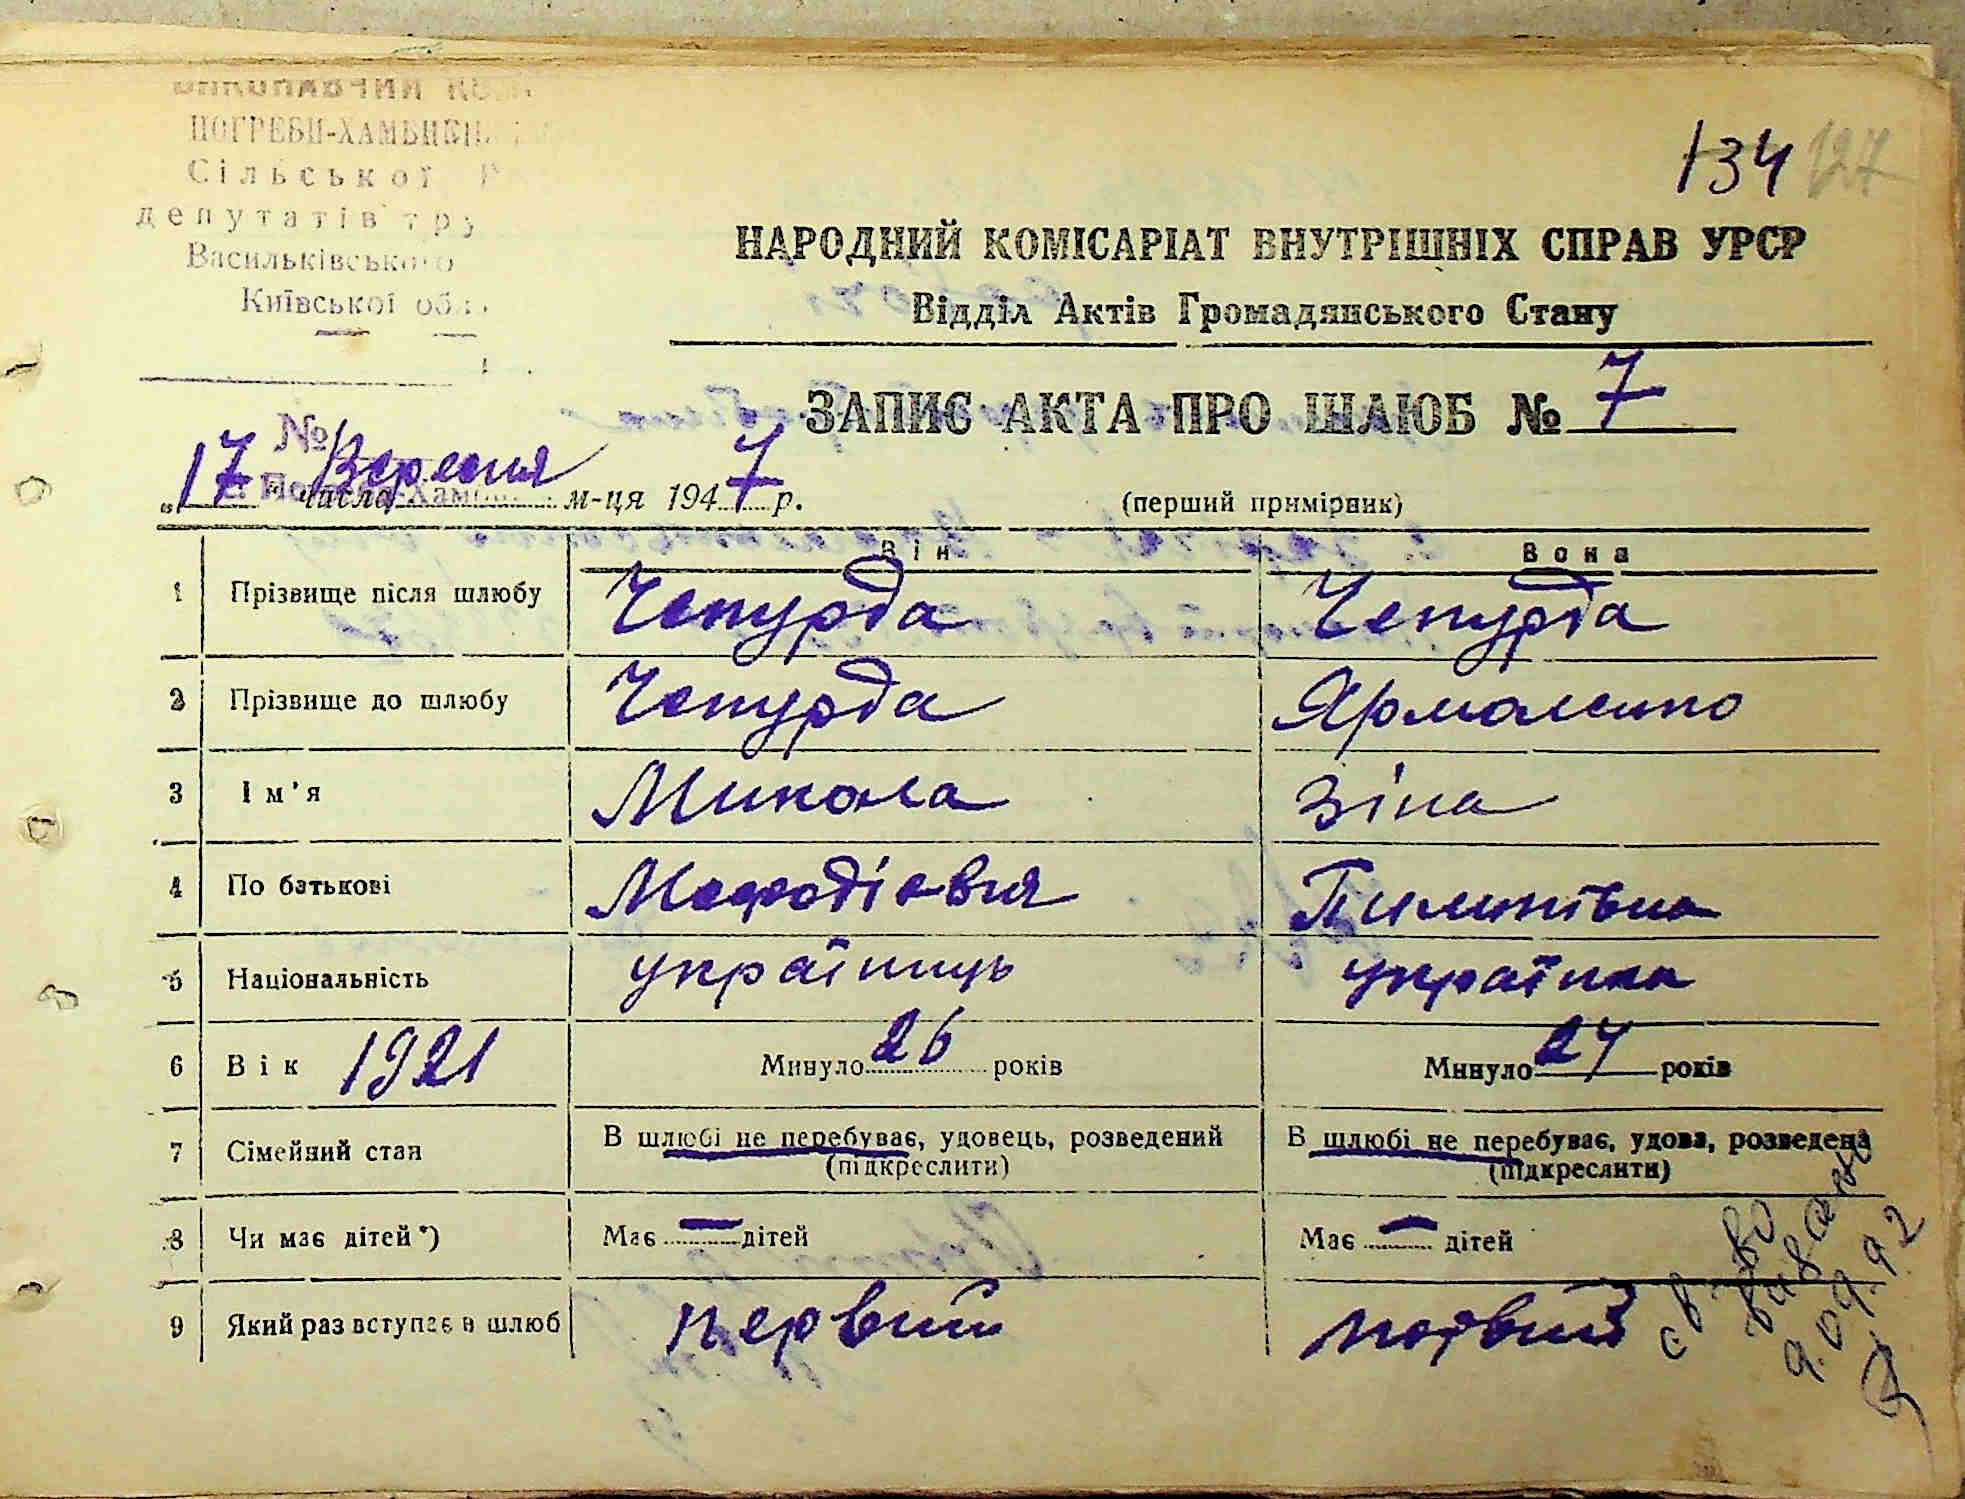 ВИКОНАВЧИЙ
ПОГРЕБИ-ХАМБИКІВ
Сільської
депутатів тру
Васильківського
Київської обл.
134 127
НАРОДНИЙ КОМІСАРІАТ ВНУТРІШНІХ СПРАВ УРСР
Відділ Актів Громадянського Стану
ЗАПИС АКТА ПРО ШЛЮБ № 7
№
„17" числа Вересня м-ця 1947 р.
(перший примірник)
Він Вона
1 Прізвище після шлюбу Чепурда Чепурда
2 Прізвище до шлюбу Чепурда Ярмоленко
3 Ім'я Микола Зіна
4 По батькові Мефодієвич Пилипівна
5 Національність українець українка
6 Вік 1921 Минуло 26 років Минуло 27 років
7 Сімейний стан В шлюбі не перебуває, удовець, розведений В шлюбі не перебуває, удова, розведена
(підкреслити) (підкреслити)
8 Чи має дітей*) Має — дітей Має — дітей
9 Який раз вступає в шлюб первий
св-во
видано
9.09.92